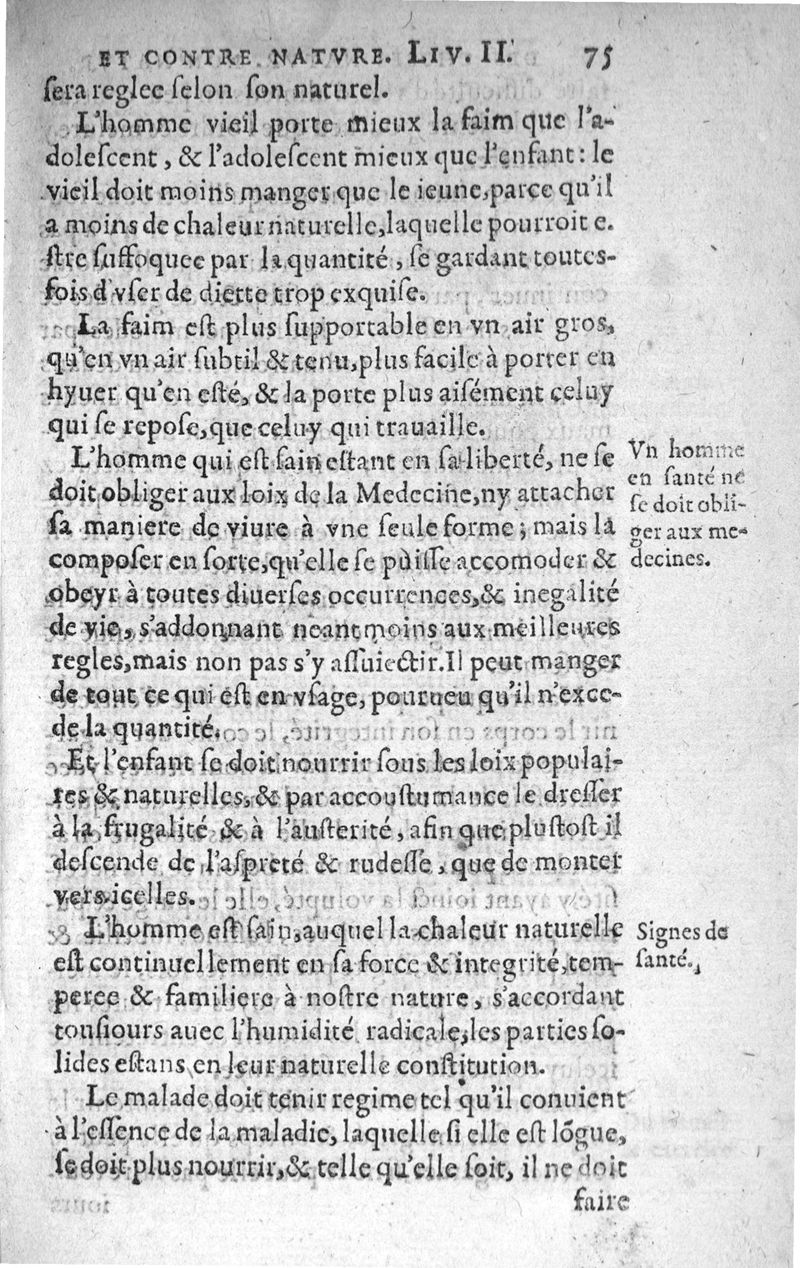 ET CONTRE NATVRE. LIV. II. 75
ſera reglee ſelon ſon naturel.
L'homme vieil porte mieux la faim que l'a-
doleſcent, & l'adoleſcent mieux que l'enfant: le
vieil doit moins manger que le ieune, parce qu'il
a moins de chaleur naturelle, laquelle pourroit e-
ſtre ſuffoquee par la quantité, ſe gardant toutes-
fois d'vſer de diette trop exquiſe.
La faim eſt plus ſupportable en vn air gros,
qu'en vn air ſubtil & tenu, plus facile à porter en
hyuer qu'en eſté, & la porte plus aiſément celuy
qui ſe repoſe, que celuy qui trauaille.
L'homme qui eſt ſain eſtant en ſa liberté, ne ſe
doit obliger aux loix de la Medecine, ny attacher
ſa maniere de viure à vne ſeule forme; mais la
compoſer en ſorte, qu'elle ſe puiſſe accomoder &
obeyr à toutes diuerſes occurrences, & inegalité
de vie, s'addonnant neantmoins aux meilleures
regles, mais non pas s'y aſſuiectir. Il peut manger
de tout ce qui eſt en vſage, pourueu qu'il n'exce-
de la quantité.
Vn homme
en ſanté ne
ſe doit obli-
ger aux me-
decines.
Et l'enfant ſe doit nourrir ſous les loix populai-
res & naturelles, & par accouſtumance le dreſſer
à la frugalité & à l'auſterité, afin que pluſtoſt il
deſcende de l'aſpreté & rudeſſe, que de monter
vers icelles.
L'homme eſt ſain, auquel la chaleur naturelle
eſt continuellement en ſa force & integrité, tem-
peree & familiere à noſtre nature, s'accordant
touſiours auec l'humidité radicale, les parties ſo-
lides eſtans en leur naturelle conſtitution.
Signes de
ſanté.
Le malade doit tenir regime tel qu'il conuient
à l'eſſence de la maladie, laquelle ſi elle eſt lõgue,
ſe doit plus nourrir, & telle qu'elle ſoit, il ne doit
faire